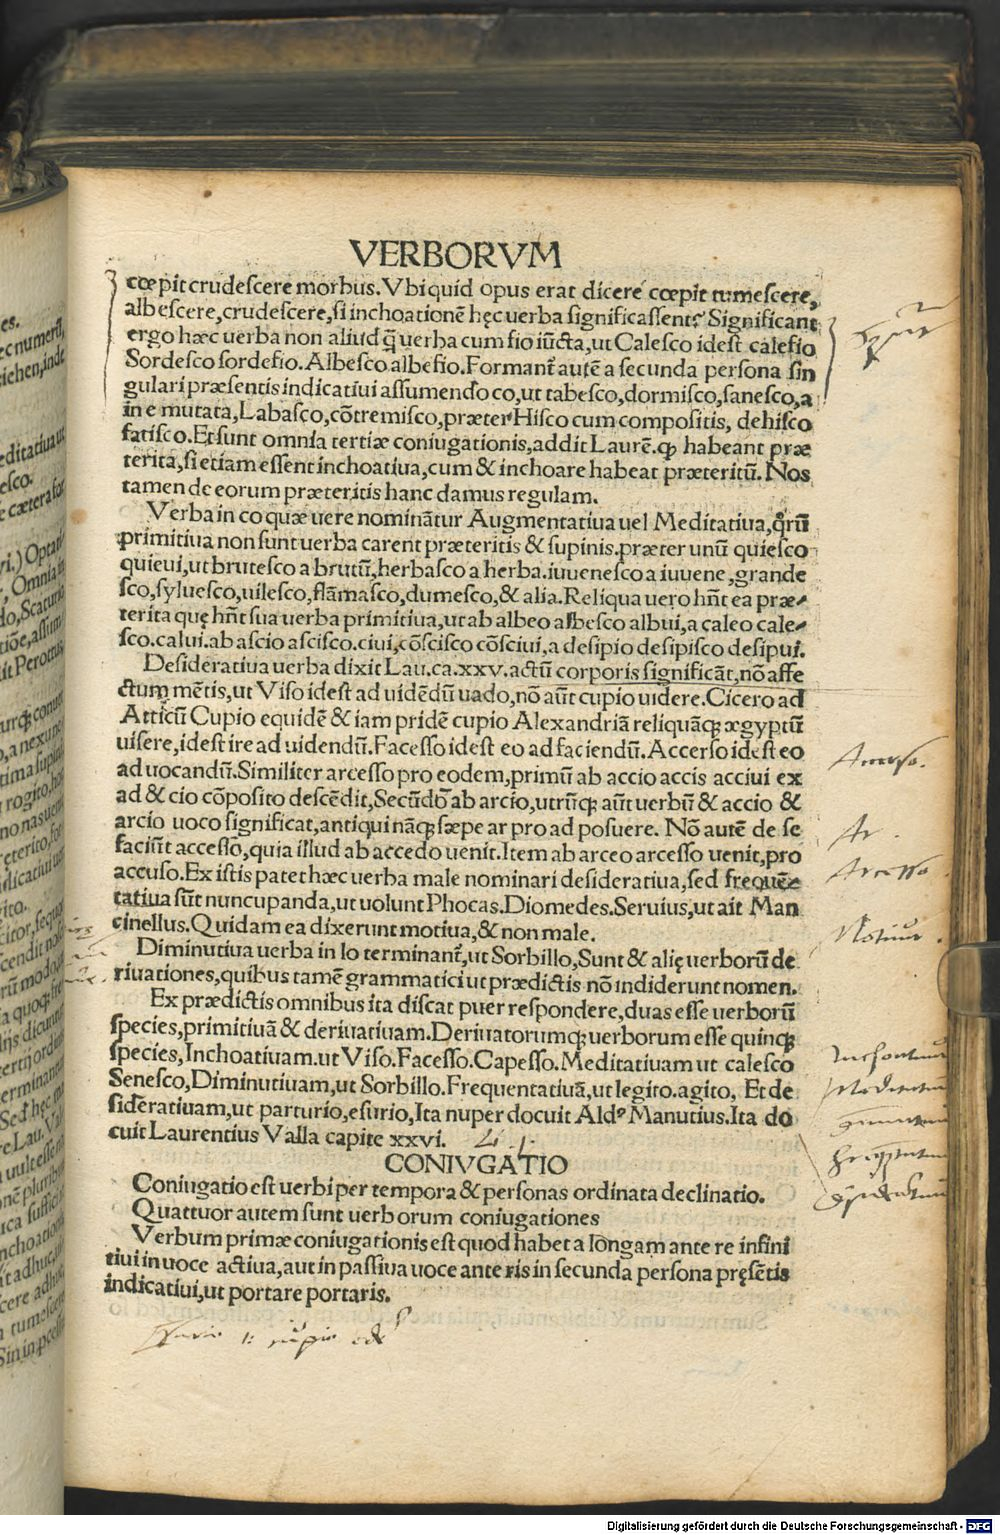 VERBORVM
cœpit crudescere morbus. Vbi quid opus erat dicere cœpit tumescere,
albescere, crudescere, si inchoationē hęc uerba significassent? Significant
ergo hæc uerba non aliud q̃ uerba cum fio iūcta, ut Calesco idest calefio
Sordesco sordefio. Albesco albefio. Formant̃ autē a secunda persona sin
gulari præsentis indicatiui assumendo co, ut tabesco, dormisco, sanesco, a
in e mutata, Labasco, cōtremisco, præter Hisco cum compositis, dehisco
fatisco. Et sunt omnia tertiæ coniugationis, addit Laurē. ꝙ habeant præ
terita, si etiam essent inchoatiua, cum & inchoare habeat præteritū. Nos
tamen de eorum præteritis hanc damus regulam.
Verba in co quæ uere nominãtur Augmentatiua uel Meditatiua, q̃rū
primitiua non sunt uerba carent præteritis & supinis. præter unū quiesco
quieui, ut brutesco a brutū, herbasco a herba. iuuenesco a iuuene, grande
sco, syluesco, uilesco, flãmasco, dumesco, & alia. Reliqua uero hñt ea præ
terita quę hñt sua uerba primitiua, ut ab albeo albesco albui, a caleo cale
sco. calui. ab ascio ascisco. ciui, cōscisco cōsciui, a desipio desipisco desipui.
Desideratiua uerba dixit Lau. ca. xxv. actū corporis significãt, nō affe
ctum mētis, ut Viso idest ad uidēdū uado, nō aūt cupio uidere. Cicero ad
Atticū Cupio equidē & iam pridē cupio Alexandriã reliquãq; ægyptū
uisere, idest ire ad uidendū. Facesso idest eo ad faciendū. Accerso idest eo
ad uocandū. Similiter arcesso pro eodem, primū ab accio accis acciui ex
ad & cio cōposito descēdit, Secūdo ab arcio, utrūq; aūt uerbū & accio &
arcio uoco significat, antiqui nãq; sæpe ar pro ad posuere. Nō autē de se
faciūt accesso, quia illud ab accedo uenit. Item ab arceo arcesso uenit, pro
accuso. Ex istis patet hæc uerba male nominari desideratiua, sed frequē
tatiua sūt nuncupanda, ut uolunt Phocas. Diomedes. Seruius, ut ait Man
cinellus. Quidam ea dixerunt motiua, & non male.
Diminutiua uerba in lo terminant̃, ut Sorbillo, Sunt & alię uerborū de
riuationes, quibus tamē grammatici ut prædictis nō indiderunt nomen.
Ex prædictis omnibus ita discat puer respondere, duas esse uerborū
species, primitiuã & deriuatiuam. Deriuatorumq; uerborum esse quinq;
species, Inchoatiuam. ut Viso. Facesso. Capesso. Meditatiuam ut calesco
Senesco, Diminutiuam, ut Sorbillo. Frequentatiuã, ut legito. agito, Et de
sideratiuam, ut parturio, esurio, Ita nuper docuit Aldꝰ Manutius. Ita do
cuit Laurentius Valla capite xxvi.
CONIVGATIO
Coniugatio est uerbi per tempora & personas ordinata declinatio.
Quattuor autem sunt uerborum coniugationes
Verbum primæ coniugationis est quod habet a longam ante re infini
tiui in uoce actiua, aut in passiua uoce ante ris in secunda persona pręsētis
indicatiui, ut portare portaris.
Accerso.
Ar.
Arcesso
Digitalisierung gefördert durch die Deutsche Forschungsgemeinschaft - DFG